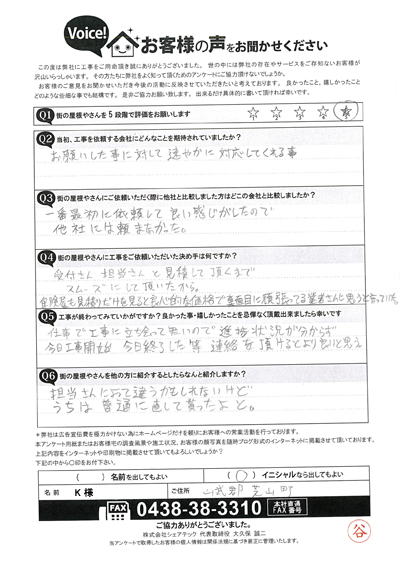 Voice!
お客様の声をお聞かせください
この度は弊社に工事をご用命頂き誠にありがとうございました。 世の中には弊社の存在やサービスをご存知ないお客様が
沢山いらっしゃいます。 その方たちに弊社をよく知って頂くためのアンケートにご協力頂けないでしょうか。
お客様のご意見をお聞かせいただき今後の活動に反映させていただきたいと考えております。 良かったこと、嬉しかったこと
どのような些細な事でも結構です。 是非ご協力お願い致します。 出来るだけ具体的に書いて頂ければ幸いです。
Q1 街の屋根やさんを5段階で評価をお願いします
1 2 3 4 5
Q2 当初、工事を依頼する会社にどんなことを期待されていましたか?
お願いした事に対して速やかに対応してくれる事
Q3 街の屋根やさんにご依頼いただく際に他社と比較しました方はどこの会社と比較しましたか?
一番最初に依頼して良い感じがしたので
他社には頼まなかった。
Q4 街の屋根やさんに工事をご依頼いただいた決め手は何ですか?
受付さん 担当さんと見積して頂くまで
スムーズにして頂いたから。
見積りだけを見ると良心的な価格で真面目に頑張ってる業者さんと思うと言っていた
Q5 工事が終わってみていかがですか?良かった事・嬉しかったことを忌憚なく頂戴出来ましたら幸いです
仕事で工事に立ち会って無いので 進捗状況が分からず
今日工事開始 今日終了した等 連絡を頂けるとより良いと思え
Q6 街の屋根やさんを他の方に紹介するとしたらなんと紹介しますか?
担当さんによって違うかもしれないけど
うちは普通に直して貰ったよと。
*弊社は広告宣伝費を極力かけない為にホームページだけを頼りにお客様への営業活動を行っております。
本アンケート用紙またはお客様宅の調査風景や施工状況、お客様の顔写真を随時ブログ形式のインターネットに掲載させて頂いております。
上記内容をインターネットや印刷物に掲載させて頂いてもよろしいでしょうか?
下記の中から〇印をお付け下さい。
( )名前を出してもよい (○)イニシャルなら出してもよい
名前 K 様 ご住所 山武郡芝山町
FAX 0438-38-3310 本社直通 FAX番号
ご協力ありがとうございました。
株式会社シェアテック 代表取締役 大久保 誠二
当アンケートで取得したお客様の個人情報は関係法規に基づき厳正に管理いたします。
谷